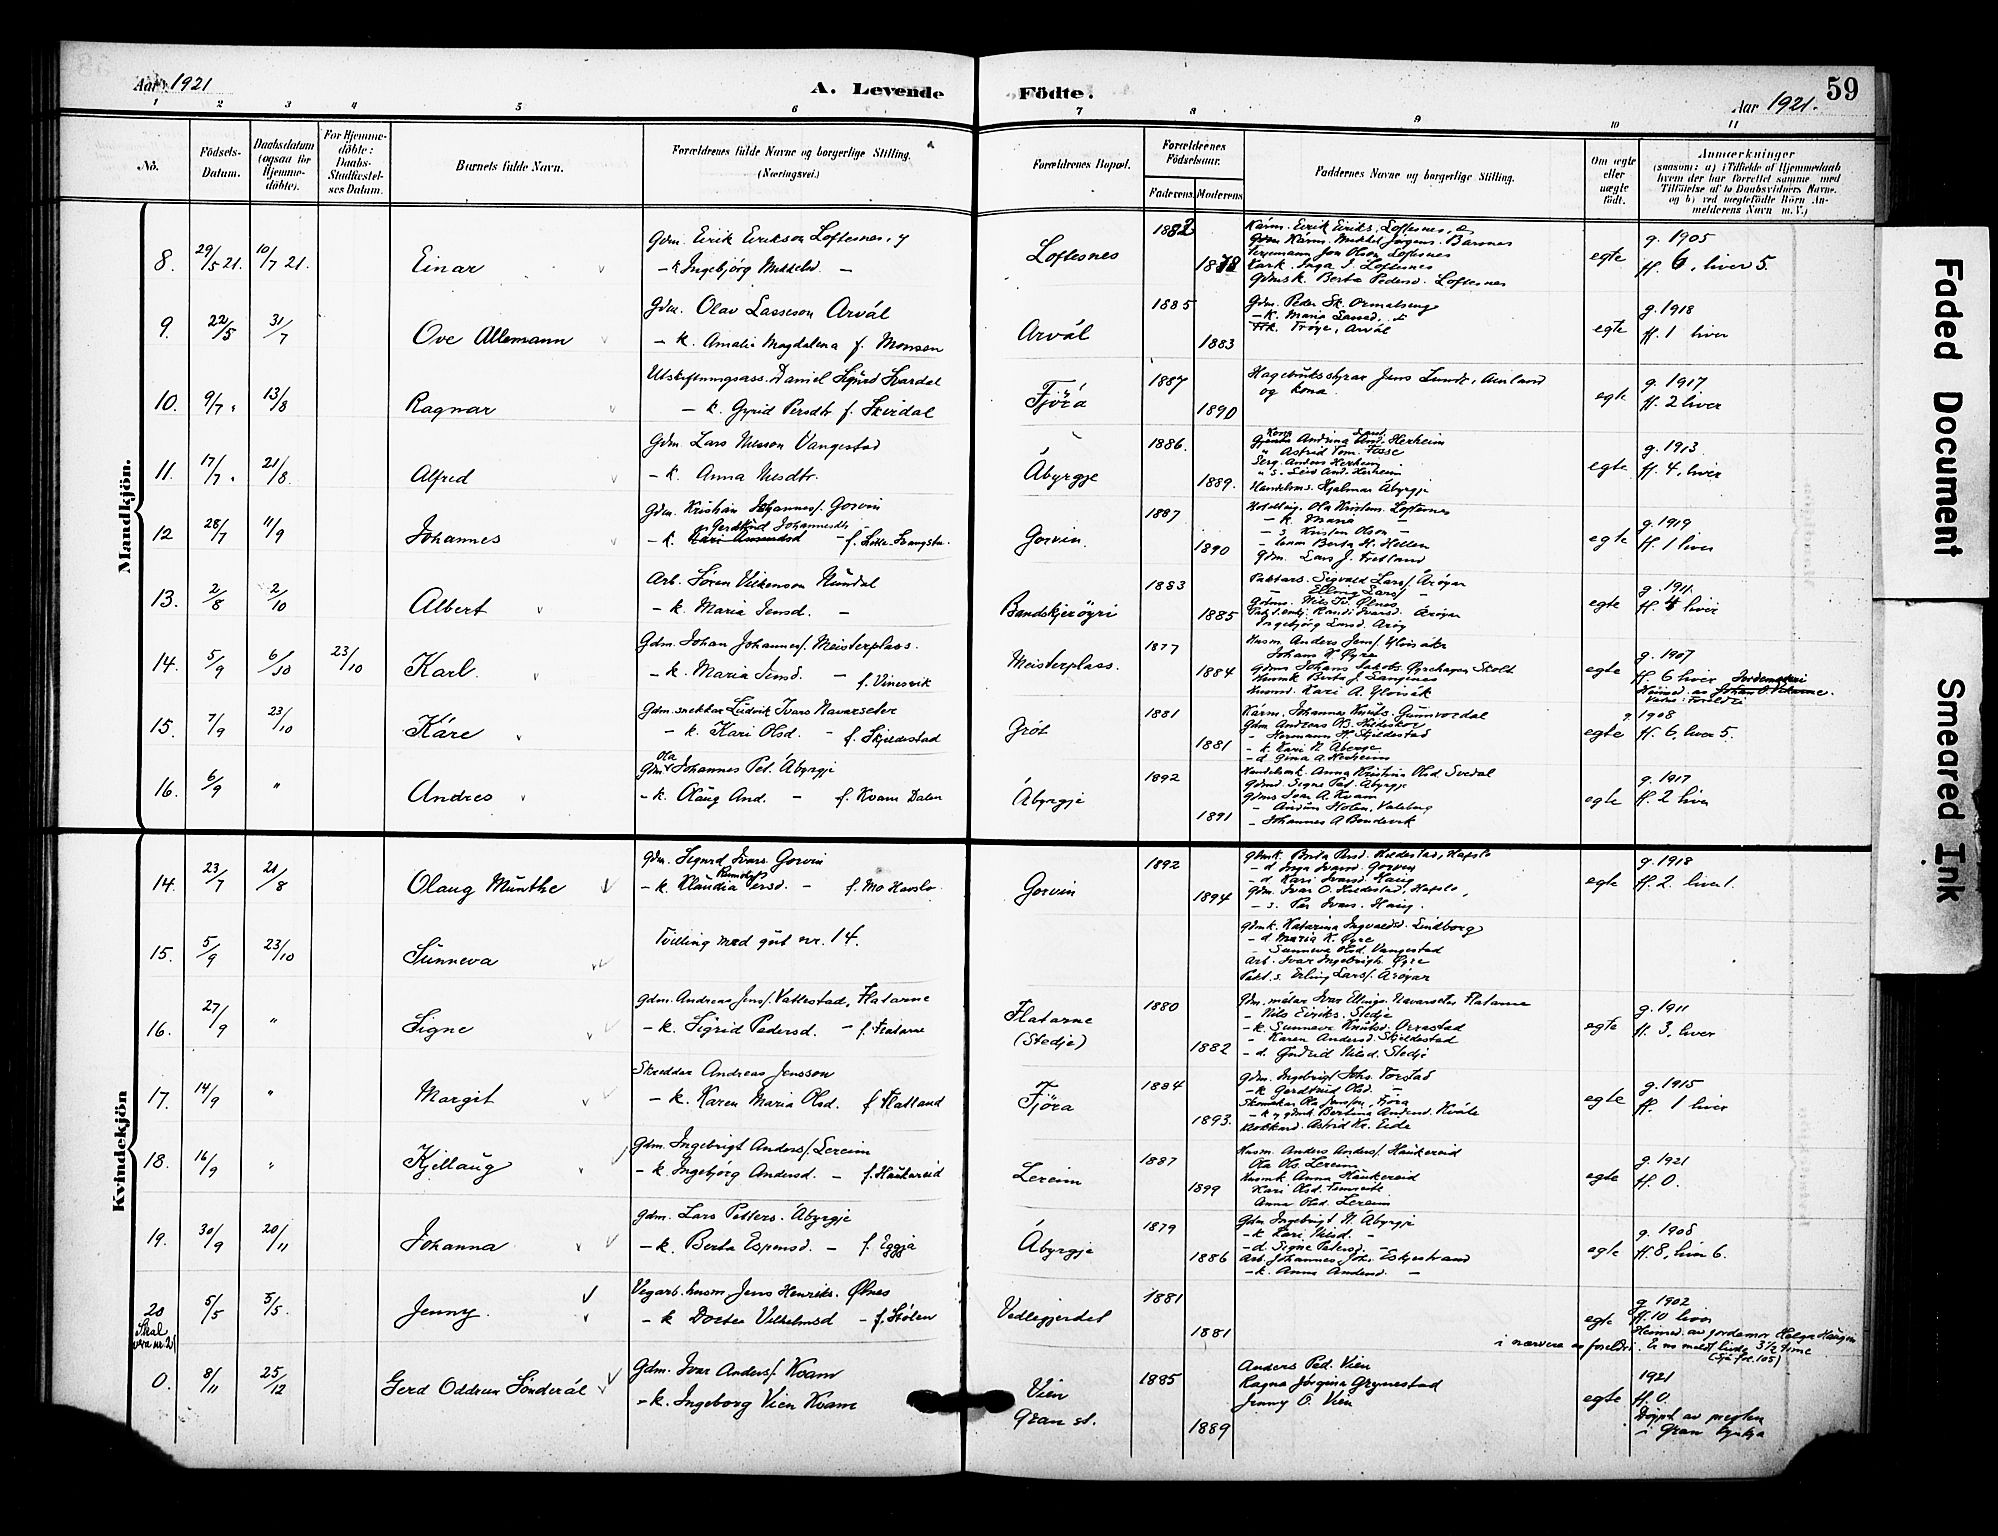 Aar 1921
A. Levende
Födte.
59
Aar 1921.
1 2 3 4 5 6 7 8 9 10 11
No.
Födsels-Datum.
Daabsdatum (ogsaa for Hjemme-döbte).
For Hjemme-döbte: Daabs-Stadfæstel-ses Datum.
Barnets fulde Navn.
Forældrenes fulde Navne og borgerlige Stilling. (Næringsvei.)
Forældrenes Bopæl.
Forældrenes Födselsaar.
Faderens Moderens
Faddernes Navne og borgerlige Stilling.
Om ægte eller uægte født.
Anmærkninger
(saasom: a) i Tilfælde af Hjemmedaab hvem der har forrettet samme med Tilföielse af to Daabsvidners Navne. og b) ved uegtefödte Börn An-melderens Navn m. V.)
Mandkjön.
8. 29/5 21. 10/7 21. Einar
Gdm. Eirik Eirikson Loftesnes, y
- k Ingebjörg Mikkelsd. -
Loftesnes 1882 1878
Kárm. Eirik Eiriks. Loftesnes,
Kárm. Mikkel Jørgens. Barsnes
Jon Olson Loftesnes
Inga J. Loftesnes
Gdmsk. Berta Pedersd. Loftesnes
egte
g. 1905
ff. 6, liver 5.
9. 22/5 31/7 Ove Allemann
Gdm. Olav Lasseson Arvál
- k. Amalie Magdalena f. Monsen
Arvál 1885 1883
Gdm. Peder Sk. Ormelseng
- k. Maria Lassed.
Frk. Tröye, Arvál
egte
g. 1918
ff. 1 liver
10. 9/7 13/8 Ragnar
Utskiftningsass. Daniel Sigurd Svardal
- k. Gyrid Persdtr f. Skeidal
Fjöra 1887 1890
Hagebruksstyrar Jens Lunde, Aurland
og kona
egte
g. 1917
ff. 2 liver
11. 17/7 21/8 Alfred
Gdm. Lars Nilsson Vangestad
- k. Anna Nilsdtr.
Ábyrgje 1886 1889.
Andrina Herheim
" Astrid Tom. Fosse
Serg. Anders Herheim
" s. Leiv And. Herheim
Handelsm. Hjalmar Ábyrgje
egte
g. 1913
ff. 4, liver
12 28/7 11/9 Johannes
Gdm. Kristian Johannes/. Gorvin
Gerdtrud Johannesdtr
- k.
Gorvin. 1887 1890
Ola Kristens. Loftesnes
- k. Maria -
- s. Kristen Olson -
Berta H. Hellen
Gdm. Lars J. Fretland
egte
g. 1919
ff. 1 liver
13. 2/8 2/10 Albert
Arb. Sören Vilkenson Nundal
- k. Maria Jensd. -
Bandskjerøyri 1883 1885
Paktars. Sigvald Lars/. Árøyar
- Elling Lars/ -
Gdms. Nils Tv. Ølnes
Randi Ivarsd. Árøyar
Ingebjörg Larsd. Arøy
egte
g. 1911.
ff. 4 liver
14. 5/9 6/10 23/10 Karl.
Gdm. Johan Johannes/. Meisterplass.
- k. Maria Jensd. - f. Vinesvik
Meisterplass. 1877 1884
Husm. Anders Jens/. Ylvisåker
Johans K. Øyre
Gdms Johans Jakobs. Øyrehagen Skolt
Husmk Berta J. Sanginus
Kari A. Ylvisåk
egte
g. 1907
ff. 6 liver Jordemori
15. 7/9 23/10 Káre
Gdm. snekkar Ludvik Ivars Navarsete
- k. Kari Olsd. - f. Skjeldestad
Gröt 1881 1881
Kárm. Johannes Knuts. Gunnvordal
Gdm Andreas Ol. Hildeskor
- Hermann H. Skjeldestad
- k. Kari N. Áberge
- d. Gina A. Herheim
egte
g. 1908
ff. 6, liver 5.
16. 6/9 " Andres
Gdm Ola Johannes Pet. Ábyrgje
- k. Olaug And. - f. Kvam Dalen
Ábyrgje 1892 1891
Anna Kristina Olsd. Svedal
Gdmd. Signe Pet. Abyrgje
Gdms Ivar A. Kvam
- Andun Holen, Valeberg
- Johannes A Bondevik
egte
g. 1917
ff. 2 liver
Kvindekjön
14. 23/7 21/8 Olaug Munthe
Gdm. Sigurd Ivars. Gorvin
- k. Klaudia Persd. - f. Mo Hafslo
Gorvin 1892 1894
Gdmk. Brita Persd. Hillestad, Hafslo
- d. Inga Ivarsd. Gorvin
- d. Kari Ivarsd. Haug
Gdm. Ivar O. Hillestad, Hafslo,
- s. Per Ivars. Haug.
egte
g. 1918
ff. 2. liver 1.
15. 5/9 23/10 Sunneva
Tvilling med gut nr. 14.
Gdmk. Katarina Ingvaldsd. Lindborg
- d. Maria K. Øyre
- Sunneva Olsd. Vangestad
Arb. Ivar Ingebrigts. Øyre
Pakt. s. Erling Lars/. Árøyar
16. 27/9 " Signe
Gdm. Andreas Jens/. Vattestad, Flatarne
- k. Sigrid Pedersd. - f. Flatarne
Flatarne
(Stedje) 1880 1882
Gdm. málar Ivar Ellings. Navarsete, Flatarne
- Nils Eiriks. Stedje
- k. Sunneva Knutsd. Orrestad
- Karen Andersd. Skjeldestad
- d. Gudrid Nilsd. Stedje
egte
g. 1911
ff. 3, liver
17. 14/9 " Margit
Skreddar Andreas Jensson
- k. Karen Maria Olsd. f. Flatland
Fjöra 1884 1893.
Gdm. Ingebrigt Johs. Torstad
- k Gerdtrud Olsd. -
Skomakar Ola Jensson, Fjöra
- k y gdmk. Bertina Andersd. Kvåle
Astrid Kr. Eide
egte
g. 1915
ff. 1 liver
18. 16/9 " Kjellaug
Gdm. Ingebrigt Anders/. Lereim
- k. Ingebjörg Andersd. - f. Haukareid
Lereim 1887 1899
Husm. Anders Anders/. Haukereid
Ola Ols. Lereim
Husmk Anna Haukereid
Kari Olsd.
Anna Olsd. Lereim
egte
g. 1921
ff. 0.
19. 30/9 20/11 Johanna
Gdm. Lars Petters. Abyrgje
- k. Berta Espensd. - f. Eggja
Ábyrgje 1879 1886
Gdm Ingebrigt N. Ábyrgje
- k. Kari Nilsd. -
- d. Signe Petersd. -
Arb. Johannes Joh. Eskjestrand
- k. Anna Andersd. -
egte
g. 1908
ff. 8, liver 6.
20
Skal vera nr. 21
5/5 5/5. Jenny.
Vegarb. husm Jens Henriks. Ølnes
- k Dortea Vilhelmsd - f. Stölen
Vedlegjerdet 1881 1881
egte
g. 1902
ff. 10 liver
Heimed. av jordemor Helga Haugen
i nærvere av foreldri. Er no meldt livde 3 1/2 time
(Sjå fol. 105)
0. 8/11 25/12 Gerd Oddrun Sönderál
Gdm. Ivar Anders/. Kvam
- k. Ingeborg Vien Kvam
Vien
Gran st. 1885 1889
Anders Ped. Vien
Ragna Jørgine Grynestad
Jenny O. Vien
egte
1921
ff. 0.
Döypt av presten
i Gran kyrkja
Faded Document
Smeared Ink